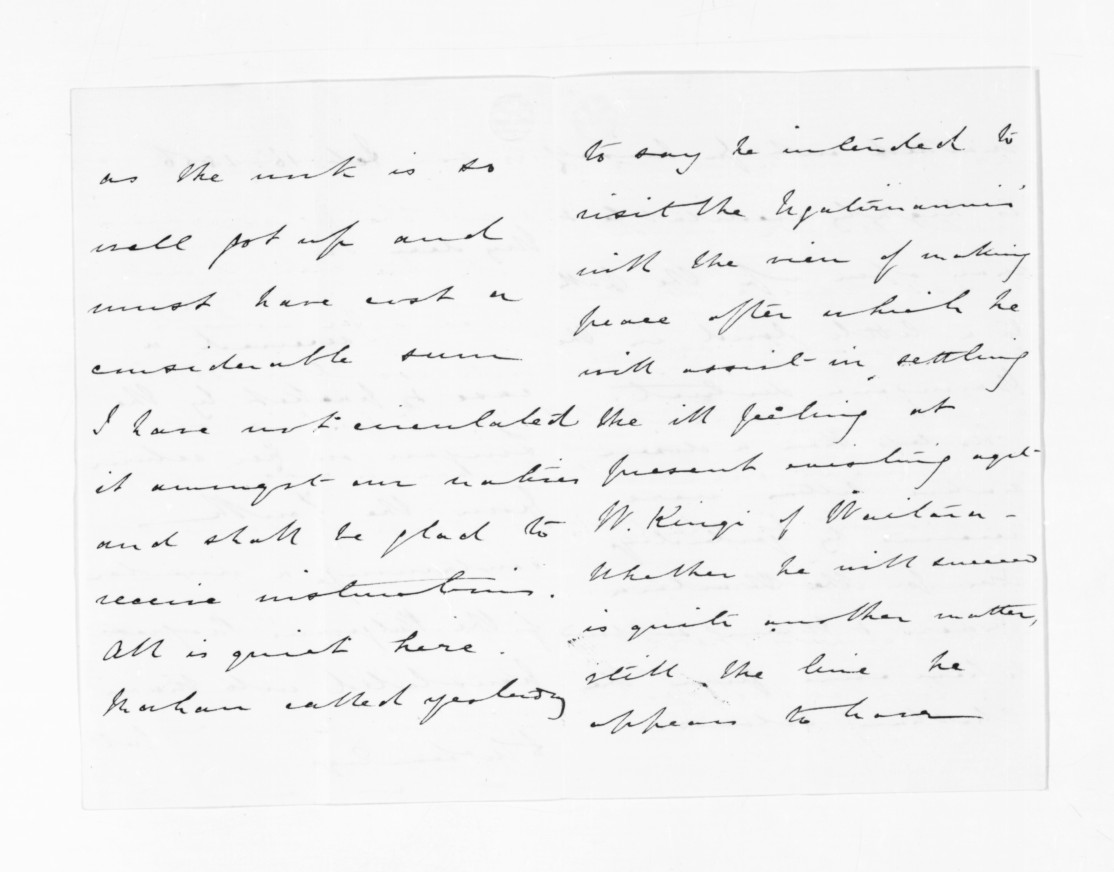 as the work is so
well got up and
must have cost a
considerable sum
I have not circulated
it amongst our natives
and shall be glad to
receive instructions.
All is quiet here.
called yesterday
to say he intended to
visit the Ngatiruanui's
with the view of making
peace after which he
will assist in settling
the ill feeling at
present existing agst
W. Kingi of Waitara -
Whether he will succeed
is quite another matter,
still the line he
appears to have